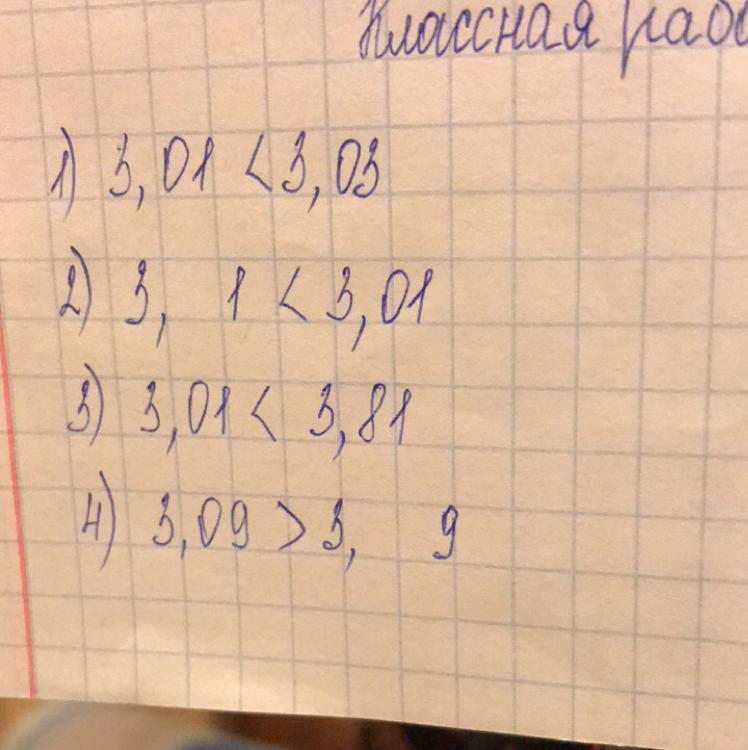 Классная
1) 3,01 < 3,03
2) 3, 1 < 3,01
3) 3,01 < 3,81
4) 3,09 > 3, 9